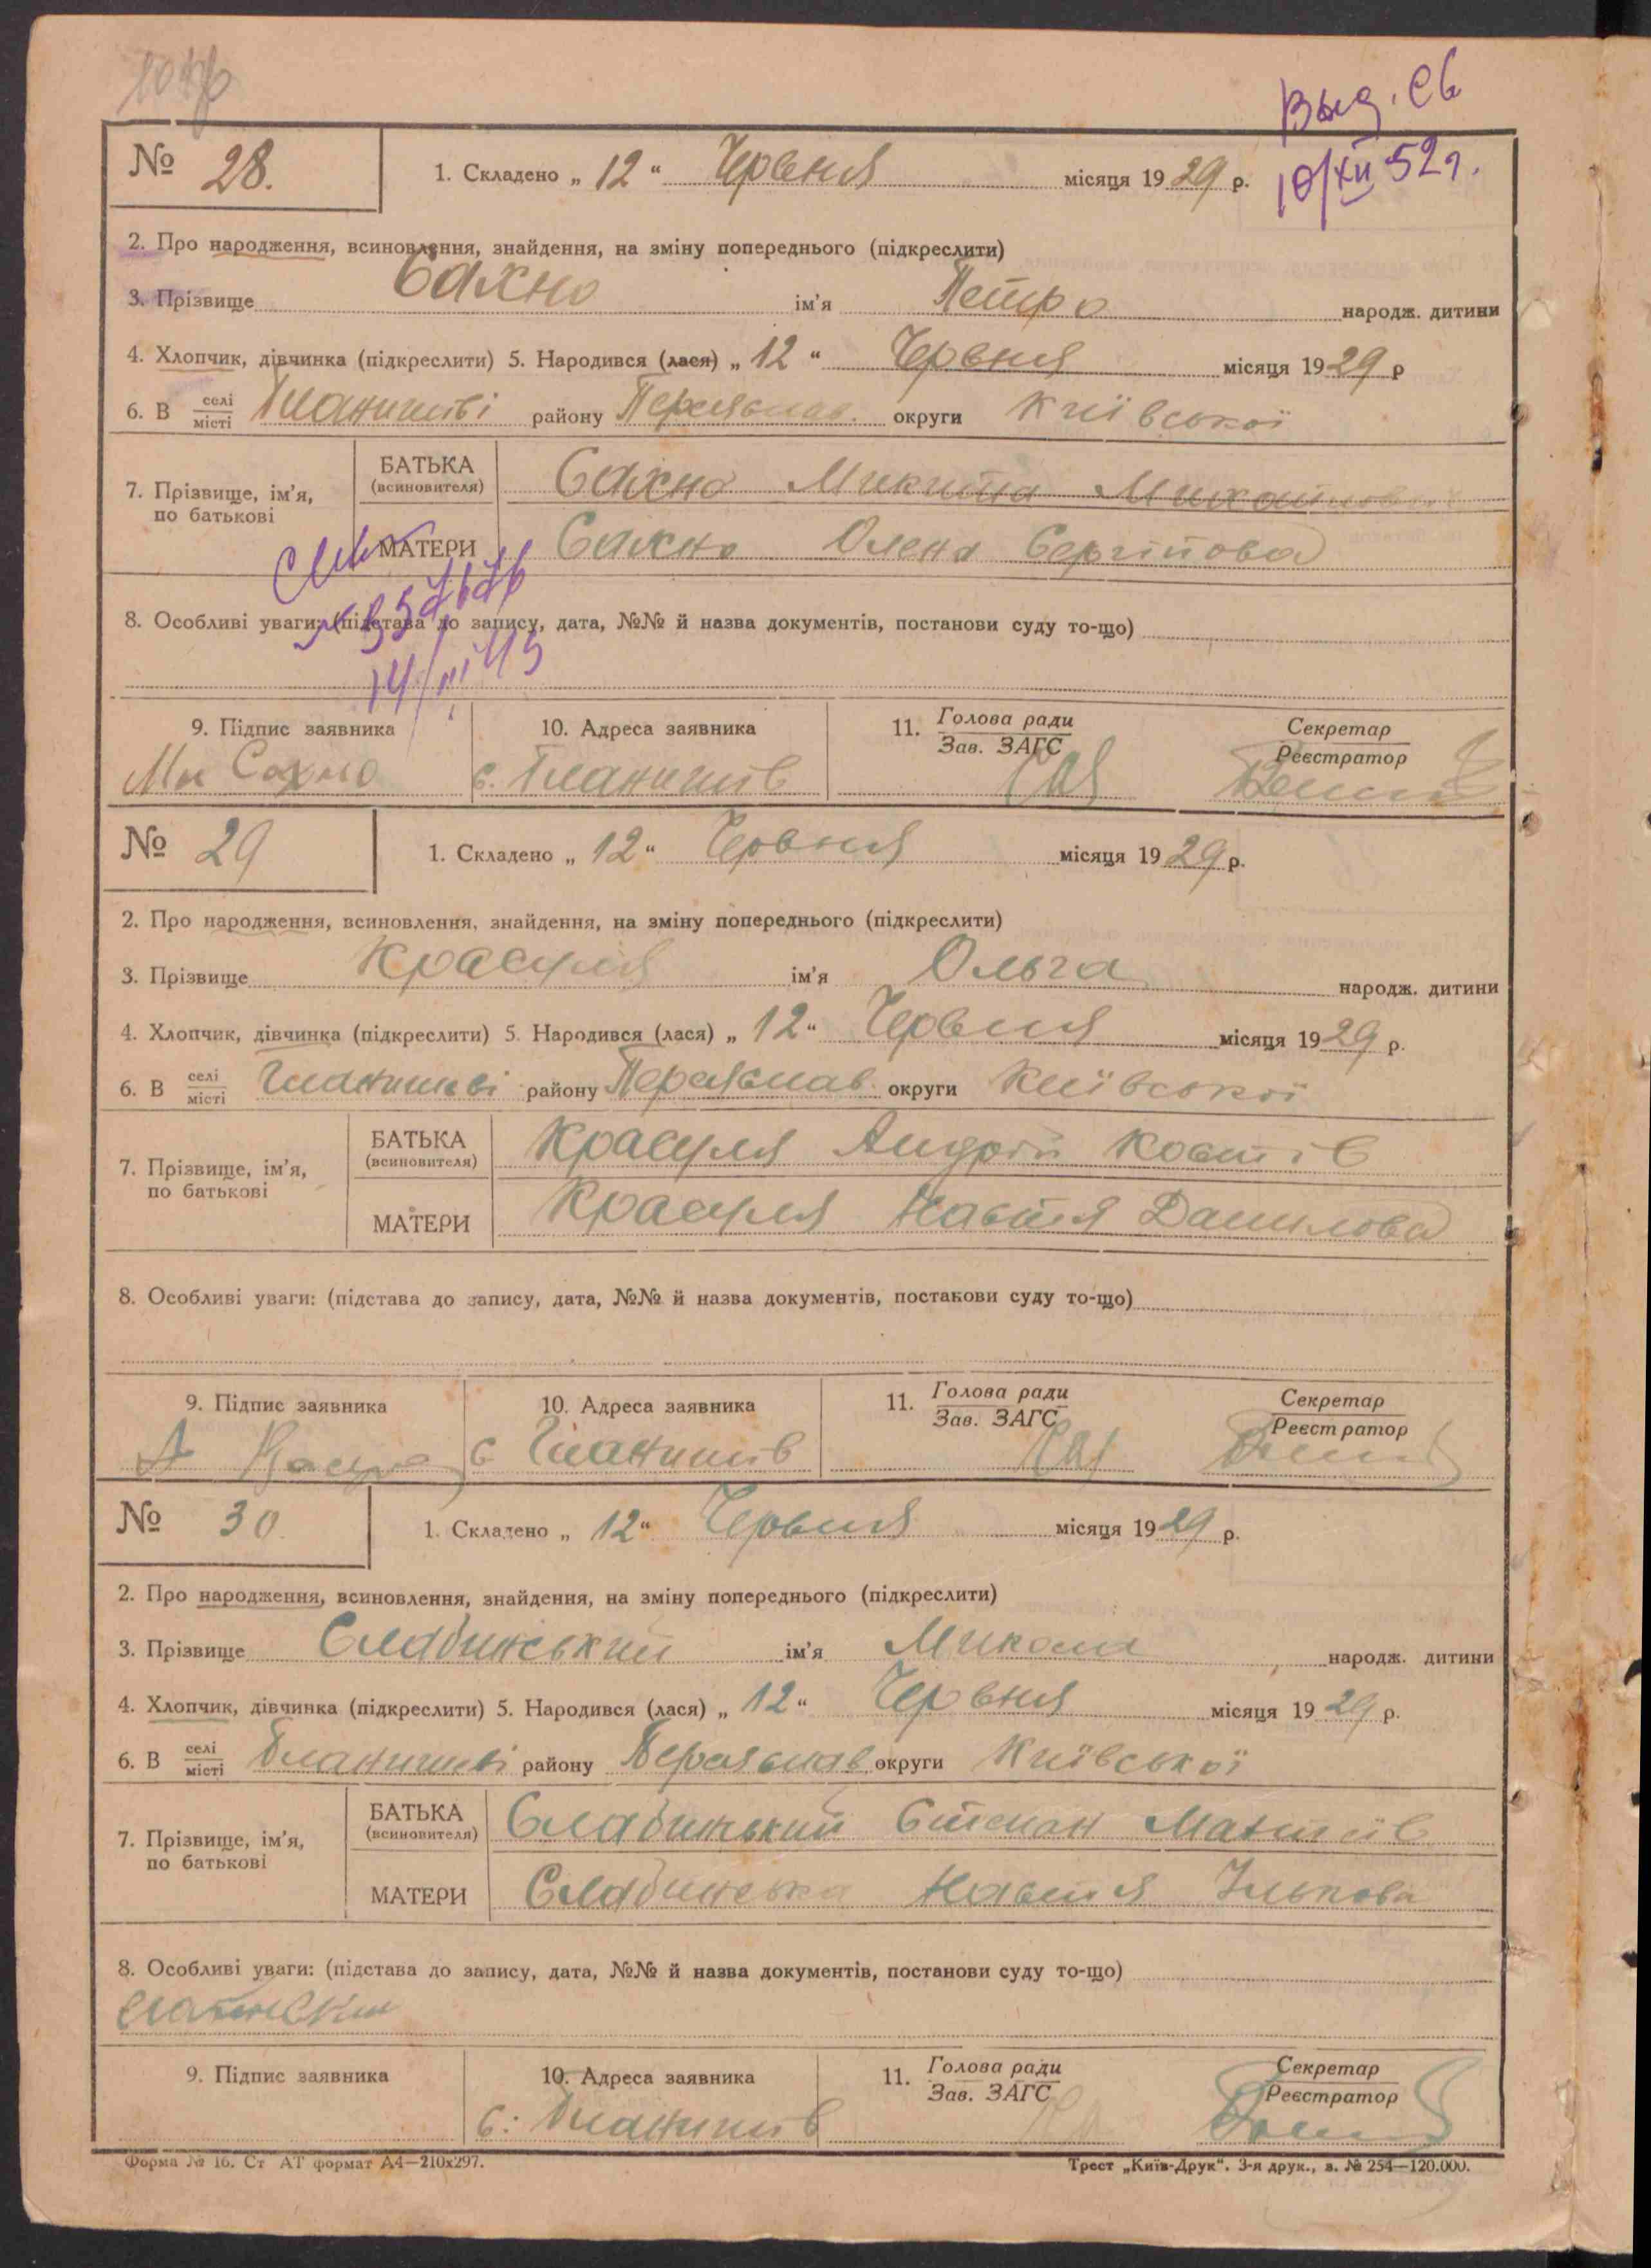 Выд. св
10/XII 52 г.
№ 28. 1. Складено „ 12 “ Червня місяця 1929 р.
2. Про народження, всиновлення, знайдення, на зміну попереднього (підкреслити)
3. Прізвище Сахно ім'я Петро народж. дитини
4. Хлопчик, дівчинка (підкреслити) 5. Народився (лася) „ 12 “ Червня місяця 1929 р
6. В селі місті Гланишеві району Переяслав. округи Київської
7. Прізвище, ім'я, по батькові
БАТЬКА (всиновителя) Сахно Микита
МАТЕРИ Сахно Олена Сергіїова
8. Особливі уваги: (підстава до запису, дата, №№ й назва документів, постанови суду то-що)
9. Підпис заявника 10. Адреса заявника 11. Голова ради Зав. ЗАГС Секретар Реєстратор
Ми Сахно с. Гланишів
№ 29 1. Складено „ 12 “ Червня місяця 1929 р.
2. Про народження, всиновлення, знайдення, на зміну попереднього (підкреслити)
3. Прізвище Красуля ім'я Ольга народж. дитини
4. Хлопчик, дівчинка (підкреслити) 5. Народився (лася) „ 12 “ Червня місяця 1929 р.
6. В селі місті Гланишеві району Переяслав. округи Київської
7. Прізвище, ім'я, по батькові
БАТЬКА (всиновителя) Красуля Андрій Костів
МАТЕРИ Красуля Настя Данилова
8. Особливі уваги: (підстава до запису, дата, №№ й назва документів, постанови суду то-що)
9. Підпис заявника 10. Адреса заявника 11. Голова ради Зав. ЗАГС Секретар Реєстратор
А с Гланишів
№ 30 1. Складено „ 12 “ Червня місяця 1929 р.
2. Про народження, всиновлення, знайдення, на зміну попереднього (підкреслити)
3. Прізвище Слабинський ім'я Микола народж. дитини
4. Хлопчик, дівчинка (підкреслити) 5. Народився (лася) „ 12 “ Червня місяця 1929 р.
6. В селі місті Гланишеві району Переяслав округи Київської
7. Прізвище, ім'я, по батькові
БАТЬКА (всиновителя) Слабинький Степан
МАТЕРИ Слабинська Настя Ількова
8. Особливі уваги: (підстава до запису, дата, №№ й назва документів, постанови суду то-що)
9. Підпис заявника 10. Адреса заявника 11. Голова ради Зав. ЗАГС Секретар Реєстратор
с: Гланишів
Форма № 16. Ст АТ формат А4—210х297. Трест „Київ-Друк“. 3-я друк., з. № 254—120.000.